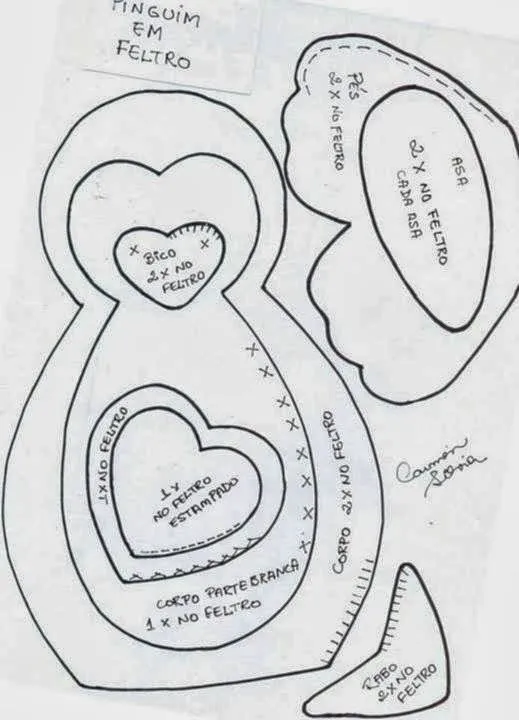 PINGUIM
EM
FELTRO
PÉS
2 X NO FELTRO
ASA
2 X NO FELTRO
CADA ASA
BICO
2 X NO
FELTRO
1X NO FELTRO
1X
NO FELTRO
ESTAMPADO
CORPO 2 X NO FELTRO
CORPO PARTE BRANCA
1 X NO FELTRO
Carmen
Sonia
RABO
2X NO
FELTRO